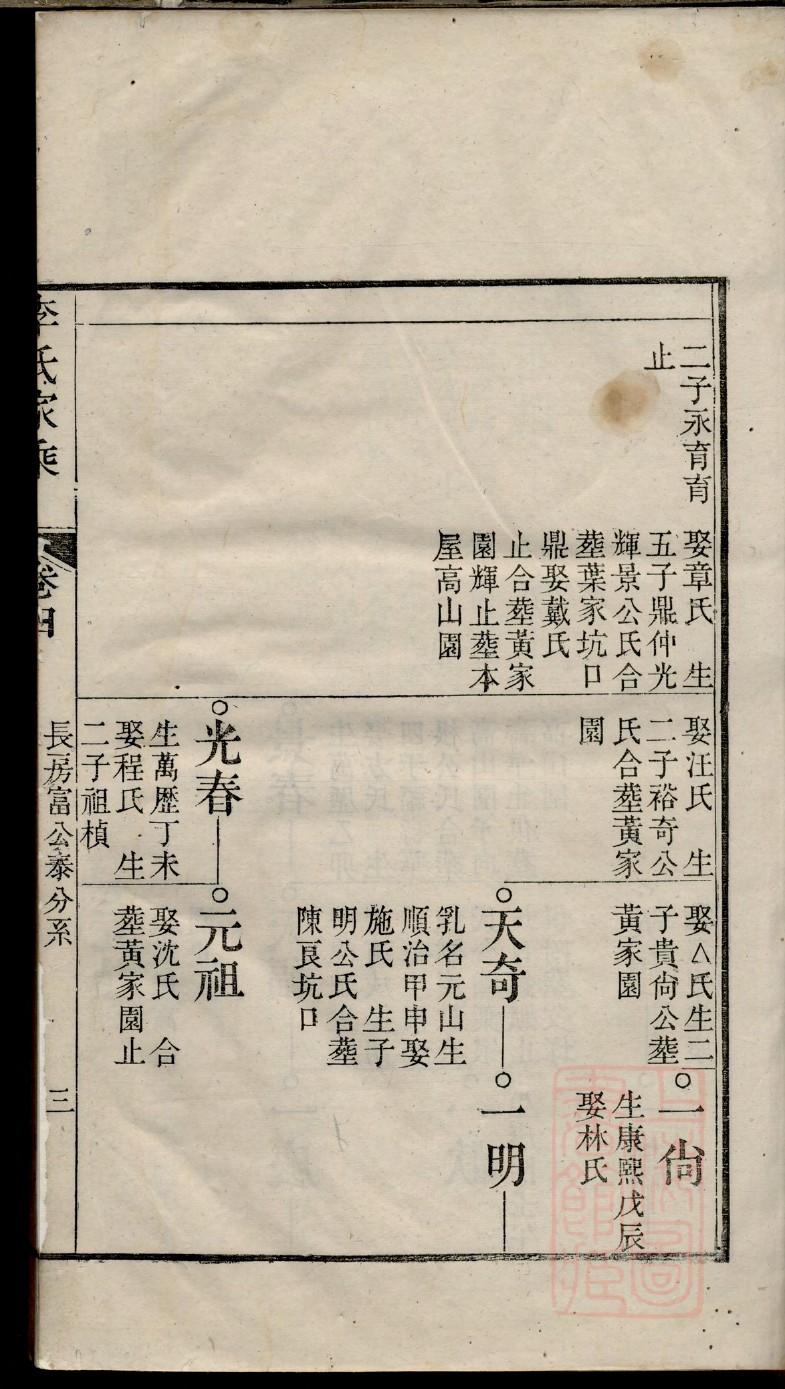 二子永育育
止
娶章氏　生
五子鼎仲光
輝景公氏合
塟葉家坑口
鼎娶戴氏
止合塟黃家
園輝止塟本
屋高山園
娶汪氏　生
二子裕奇公
氏合塟黃家
園
娶△氏生二
子貴尙公塟
黃家園
一尙
生康熙戊辰
娶林氏
天奇
乳名元山生
順治甲申娶
施氏　生子
明公氏合塟
陳㫐坑口
一明
光春
生萬歷丁未
娶程氏　生
二子祖楨
元祖
娶沈氏　合
塟黃家園止
李氏家乘
卷四
長房富公泰分系
三